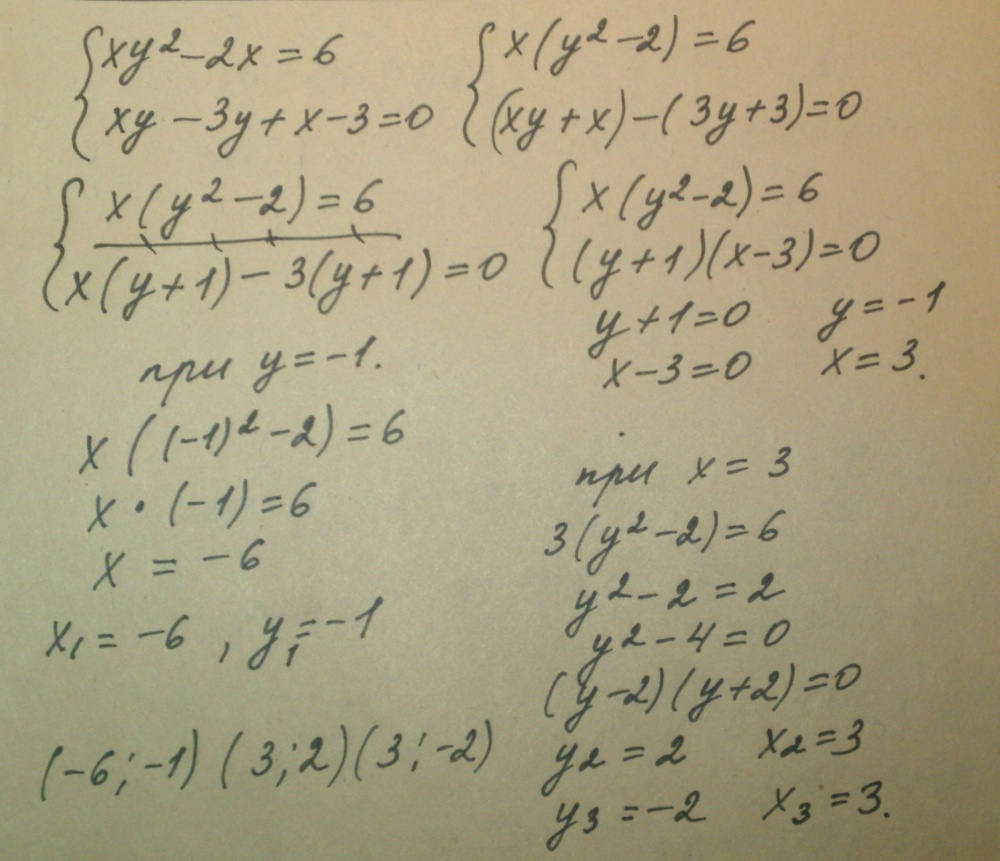 { xy² - 2x = 6
xy - 3y + x - 3 = 0
{ x(y² - 2) = 6
(xy + x) - (3y + 3) = 0
{ x(y² - 2) = 6
x(y + 1) - 3(y + 1) = 0
{ x(y² - 2) = 6
(y + 1)(x - 3) = 0
y + 1 = 0 y = -1
x - 3 = 0 x = 3.
при y = -1.
x((-1)² - 2) = 6
x · (-1) = 6
x = -6
x₁ = -6, y₁ = -1
при x = 3
3(y² - 2) = 6
y² - 2 = 2
y² - 4 = 0
(y - 2)(y + 2) = 0
y₂ = 2 x₂ = 3
y₃ = -2 x₃ = 3.
(-6; -1) (3; 2) (3; -2)